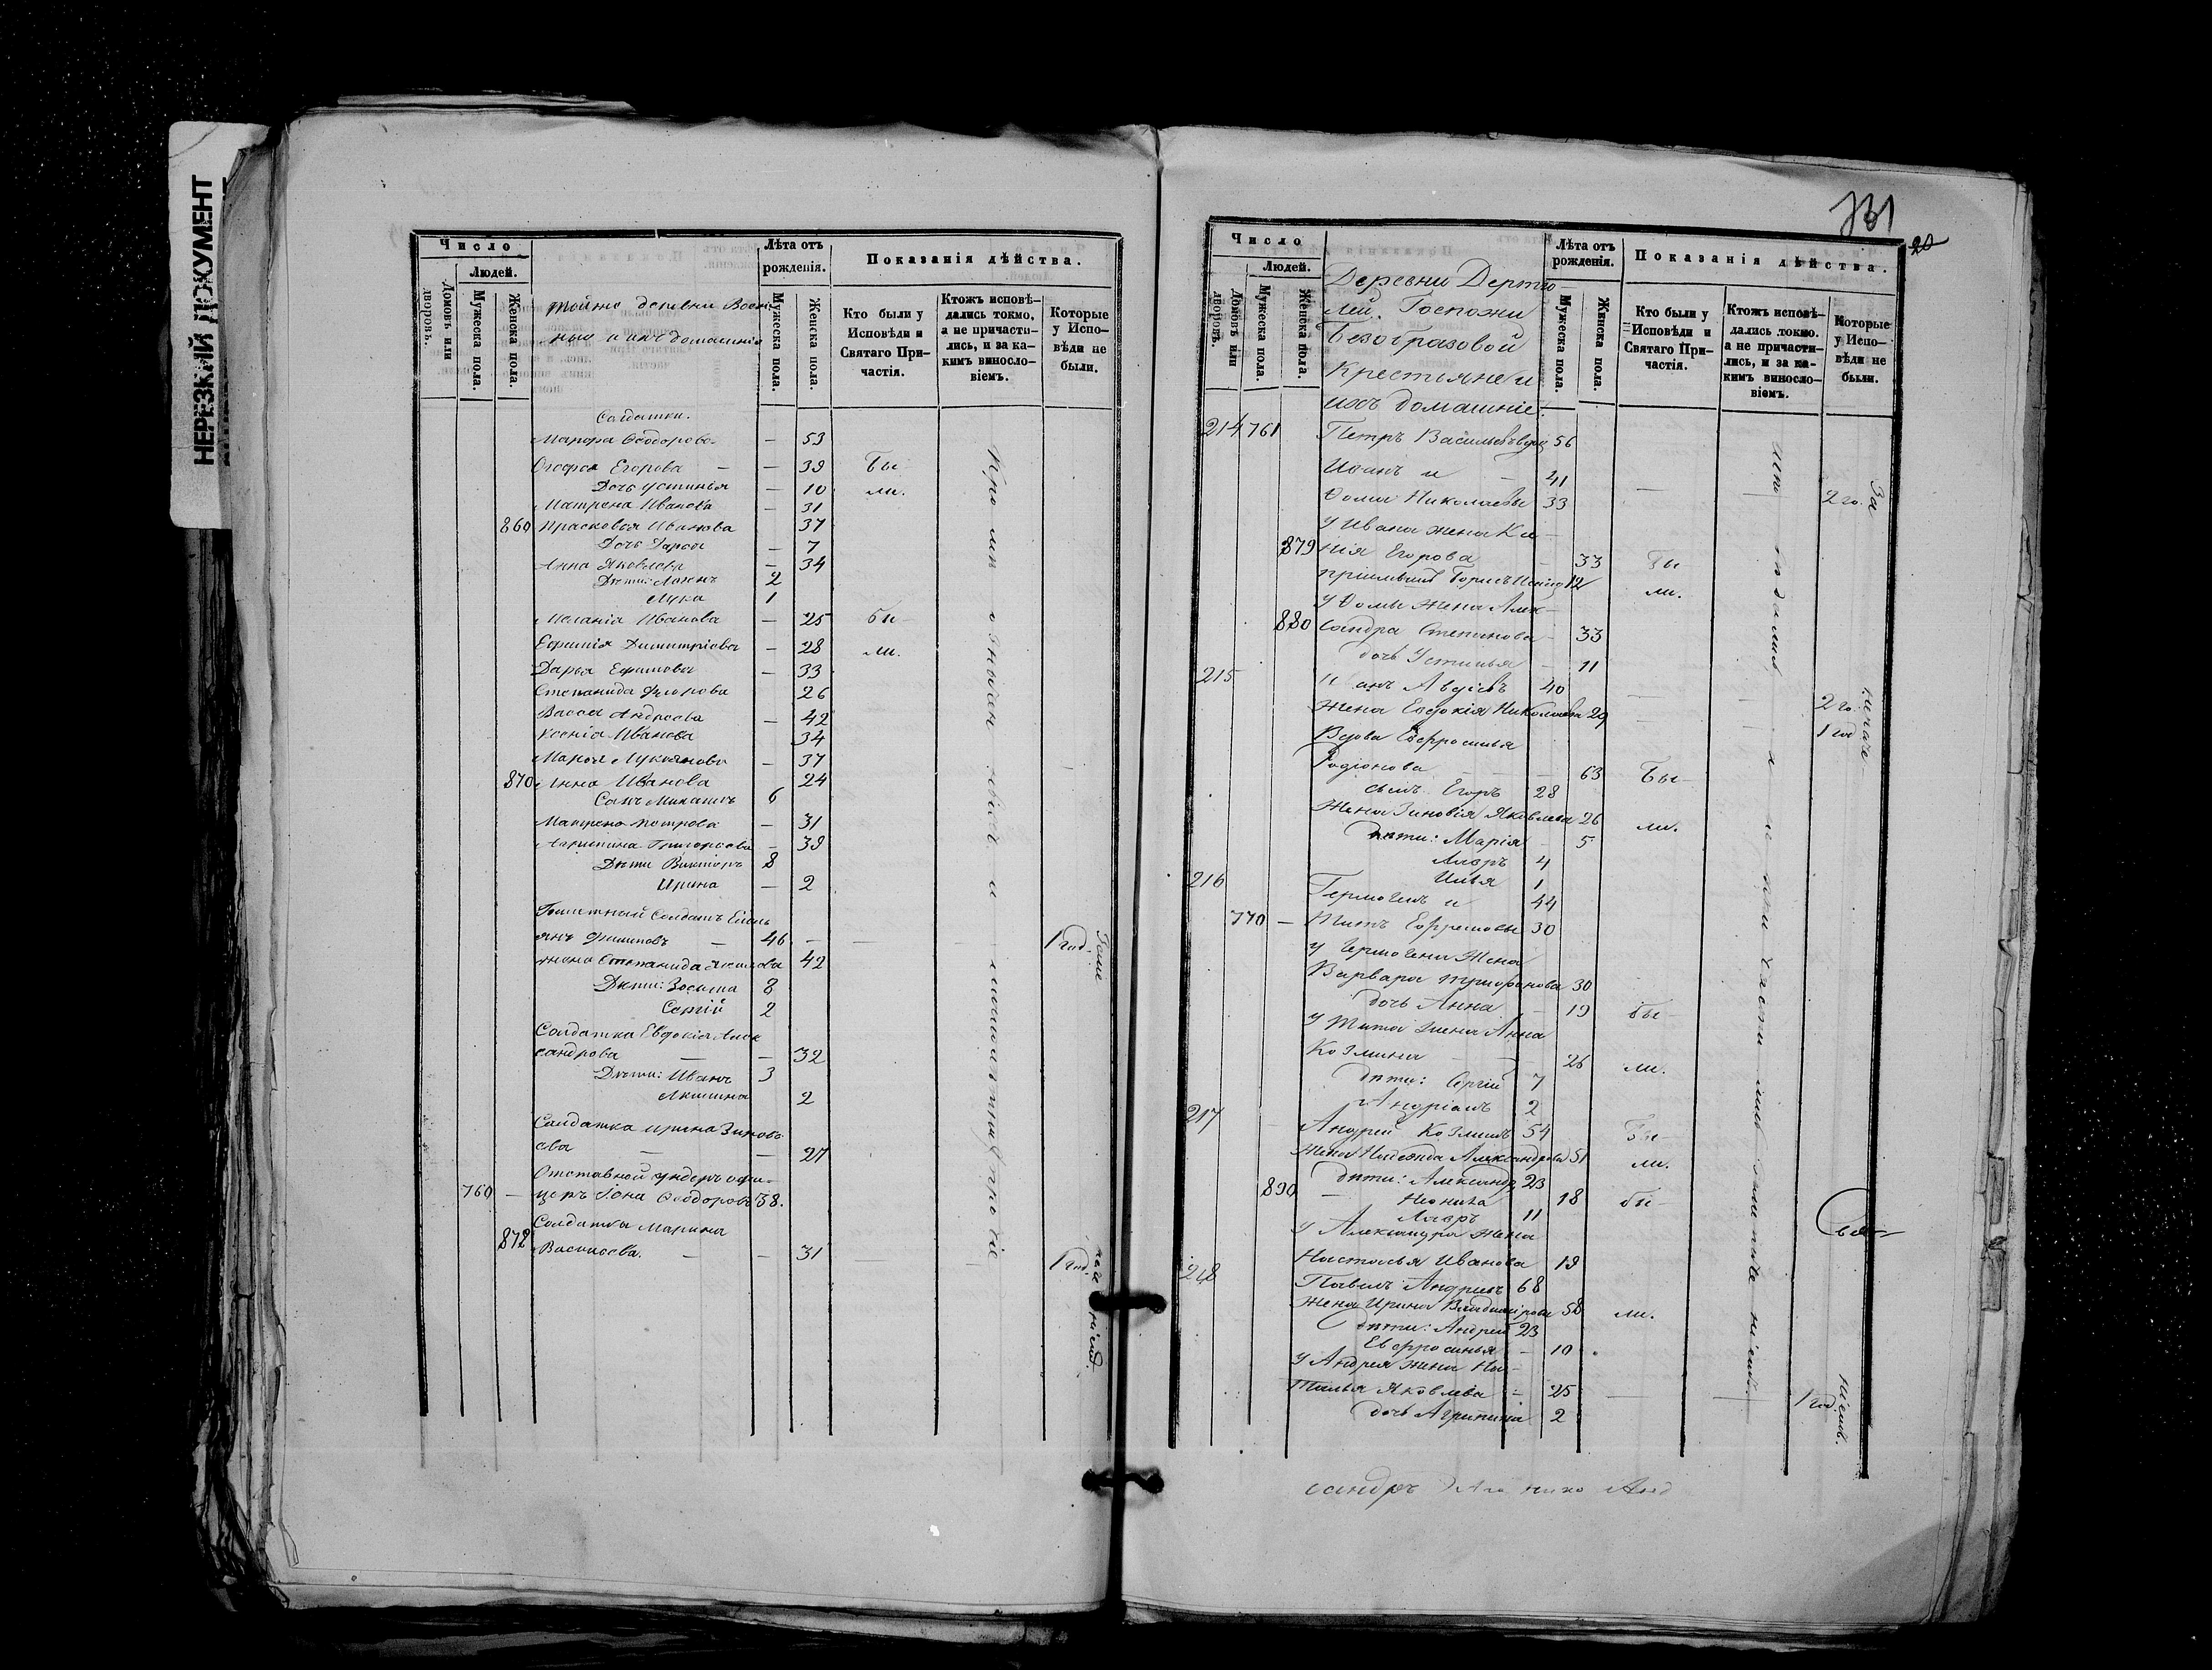 НЕРЕЗКИЙ ДОКУМЕНТ
Число
Людей.
Домовъ или дворовъ.
Мужеска пола.
Женска пола.
тойже деревни
ные и ихъ домашнія
Лѣта отъ рожденія.
Мужеска пола.
Женска пола.
Показанія дѣйства.
Кто были у Исповѣди и Святаго Причастія.
Ктожъ исповѣдались токмо, а не причастились, и за какимъ винословіемъ.
Которые у Исповѣди не были.
Солдатки.
Марфа Ѳеодорова — 53
Егорова — — 39 Бы-
Дочь Устинья — 10 ли.
Матрена Иванова — 31
860 Прасковья Иванова 37
Дочь Дарья — 7
Анна Яковлева — 34
Дѣти: 2
Лука 1
Меланія Иванова — 25 бы-
Евфимія Димитріова — 28 ли.
Дарья Ефимова — 33
Степанида 26
Васса Андреева — 42
Ксенія Иванова 34
Марья Лукьянова — 37
870 Анна Иванова 24
Сынъ 6
Матрена Петрова — 31
Агрипина Григорьева — 39
Дѣти Викторъ 8
Ирина — 2
Солдатъ
янъ Филиповъ — 46 — — — 1 год.
жена Степанида 42
Дѣти: Зосима 8
Сергій 2
Солдатка Евдокія Алек
сандрова — — 32
Дѣти: Иванъ 3
Акилина 2
Солдатка Ирина Зиновь-
ева — — 27
Отставной ундеръ офи-
760 — церъ Іона Ѳеодоровъ 38.
Солдатка Марина
872 Васильева. — — 31 — — 1 год.
731
20
Число
Людей.
Домовъ или дворовъ.
Мужеска пола.
Женска пола.
Лѣта отъ рожденія.
Мужеска пола.
Женска пола.
Показанія дѣйства.
Кто были у Исповѣди и Святаго Причастія.
Ктожъ исповѣдались токмо. а не причастились, и за какимъ винословіемъ.
Которые у Исповѣди не были.
Деревни
лей. Госпожи
Безобразовой
Крестьяне и
ихъ домашніе.
214 761 Петръ Васильевъ 56
Иванъ и — 41
Ѳома Николаевы 33 — — 2 го.
У Ивана жена Ксе-
879 нія Егорова — 33 Бы-
Борисъ 12 ли.
У Ѳомы жена Алек-
880 сандра Степанова — 33
дочь Устинья — 11
215 Авдіевъ 40 — — 2 го.
Жена Евдокія Николаева 29 — — 1 год
Вдова Евфросинья
Родіонова — — — 63 Бы-
сынъ Егоръ 28
Жена Зиновія Яковлева 26 ли.
дѣти: Марія — 5
Лавръ 4
Илья 1
216 Гермогенъ и 44
770 — Титъ Ефремовы 30
У Гермогена Жена
Варвара Трифонова 30
дочь Анна — 19 бы-
У Тита жена Анна
Козмина — — 26 ли.
дѣти: Сергій 7
Андріанъ 2
217 Андрей Козминъ 54 Бы-
Жена Надежда Александрова 51 ли.
дѣти: Александр 23
890 — Неонила 18 бы-
Лавръ 11
У Александра Жена
Наталья Иванова 19
218 Павелъ Андреевъ 68
Жена Ирина Владимірова 58 ли.
дѣти: Андрей 23
Евфросинья — 10
У Андрея жена На-
талья Яковлева — 25 — — 1 год.
дочь Агрипина 2